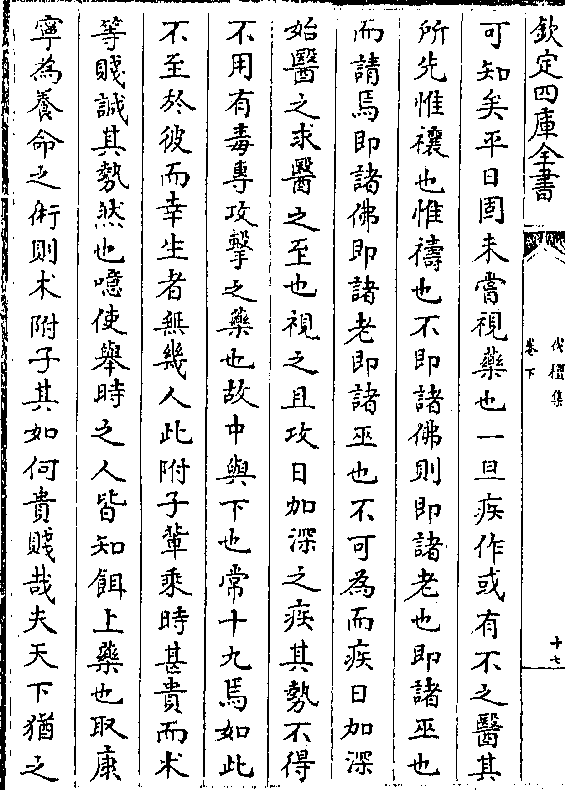 欽定四庫全書
伐檀集
卷下
十七
可知矣平日固未嘗視藥也一旦疾作或有不之醫其
所先惟禳也惟禱也不即諸佛則即諸老也即諸巫也
而請焉即諸佛即諸老即諸巫也不可為而疾日加深
始醫之求醫之至也視之且攻日加深之疾其勢不得
不用有毒專攻擊之藥也故中與下也常十九焉如此
不至於彼而幸生者無幾人此附子輩乘時甚貴而术
等賤誠其勢然也噫使舉時之人皆知餌上藥也取康
寧為養命之術則术附子其如何貴賤哉夫天下猶之